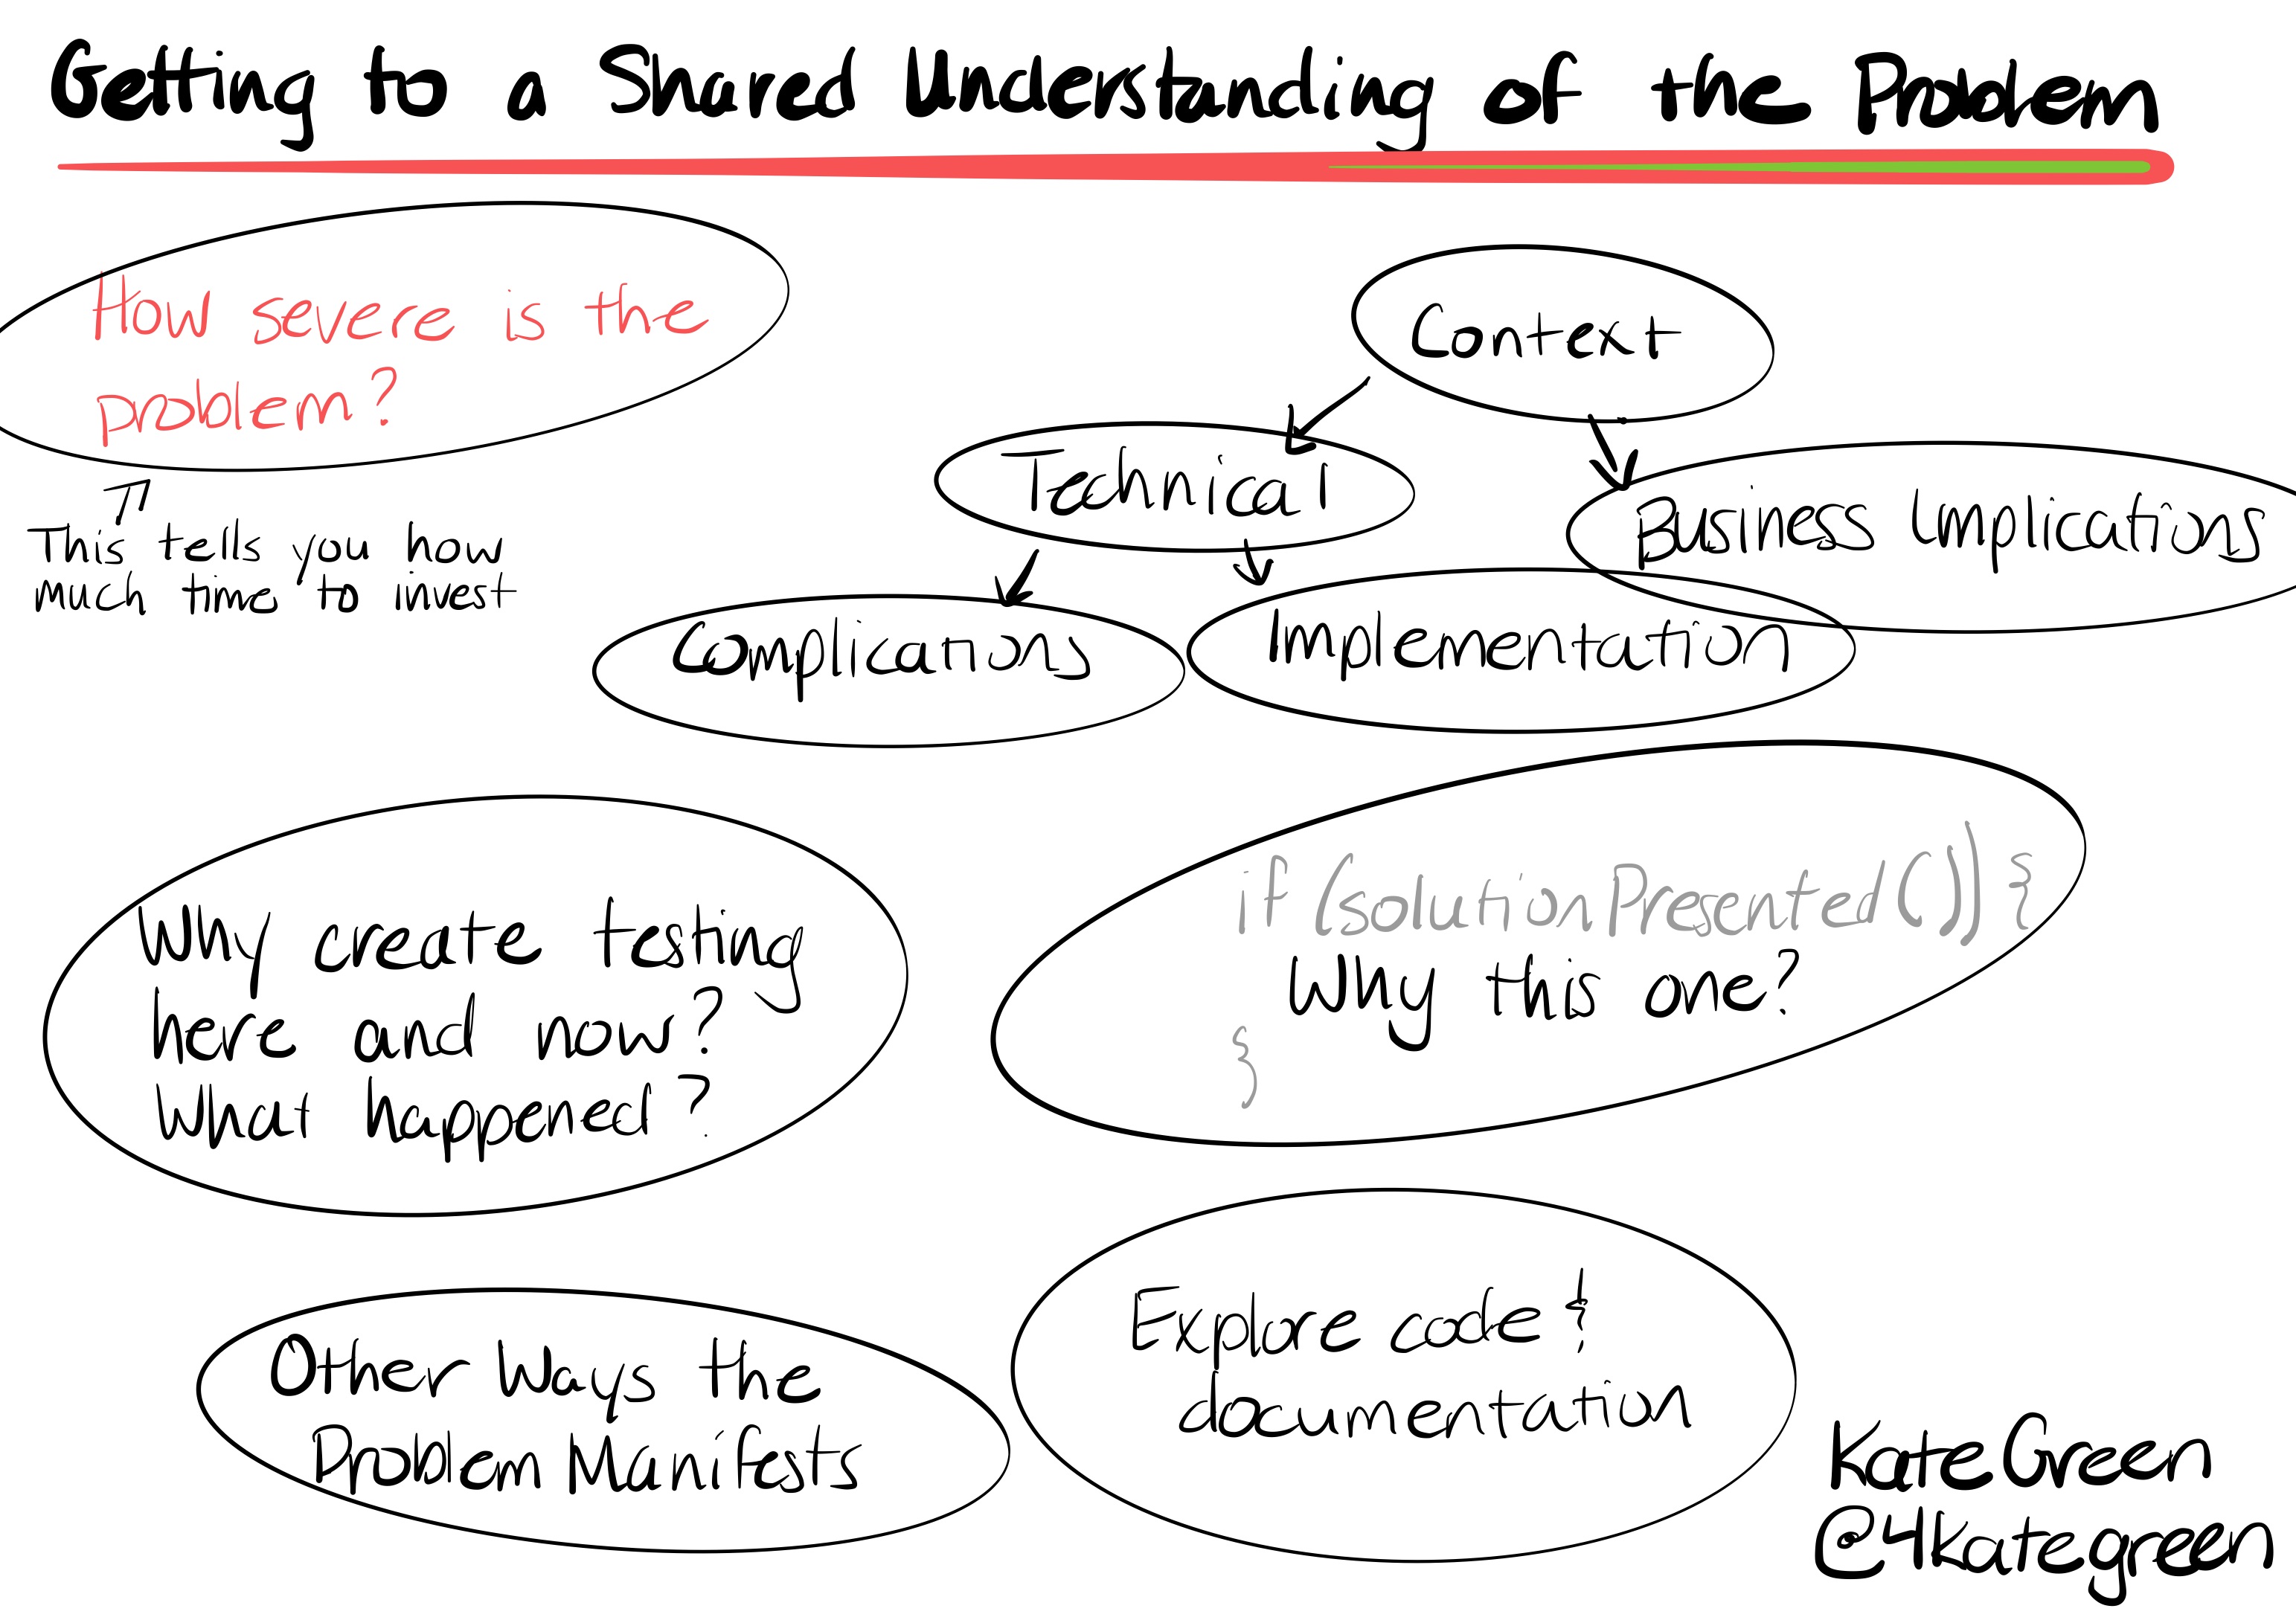 Getting to a Shared Understanding of the Problem
How severe is the
problem?
This tells you how
much time to invest
Context
Technical
Business Implications
Complications
Implementation
Why create testing
here and now?
What happened?
if (solutionPresented()) {
Why this one?
}
Other Ways the
Problem Manifests
Explore code &
documentation
Kate Green
@4kategreen